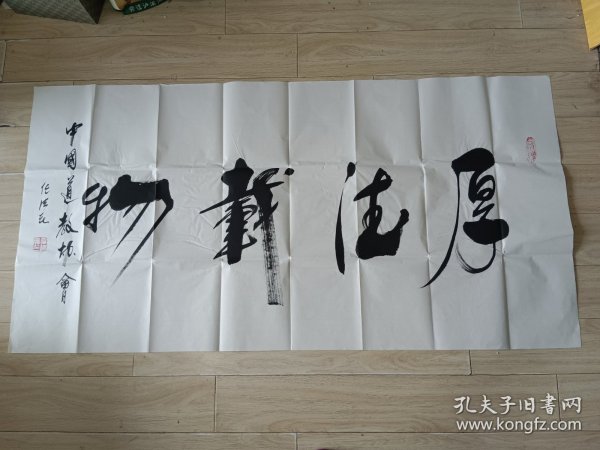 厚德载物
中國道教协會
任法融
孔夫子旧書网
www.kongfz.com